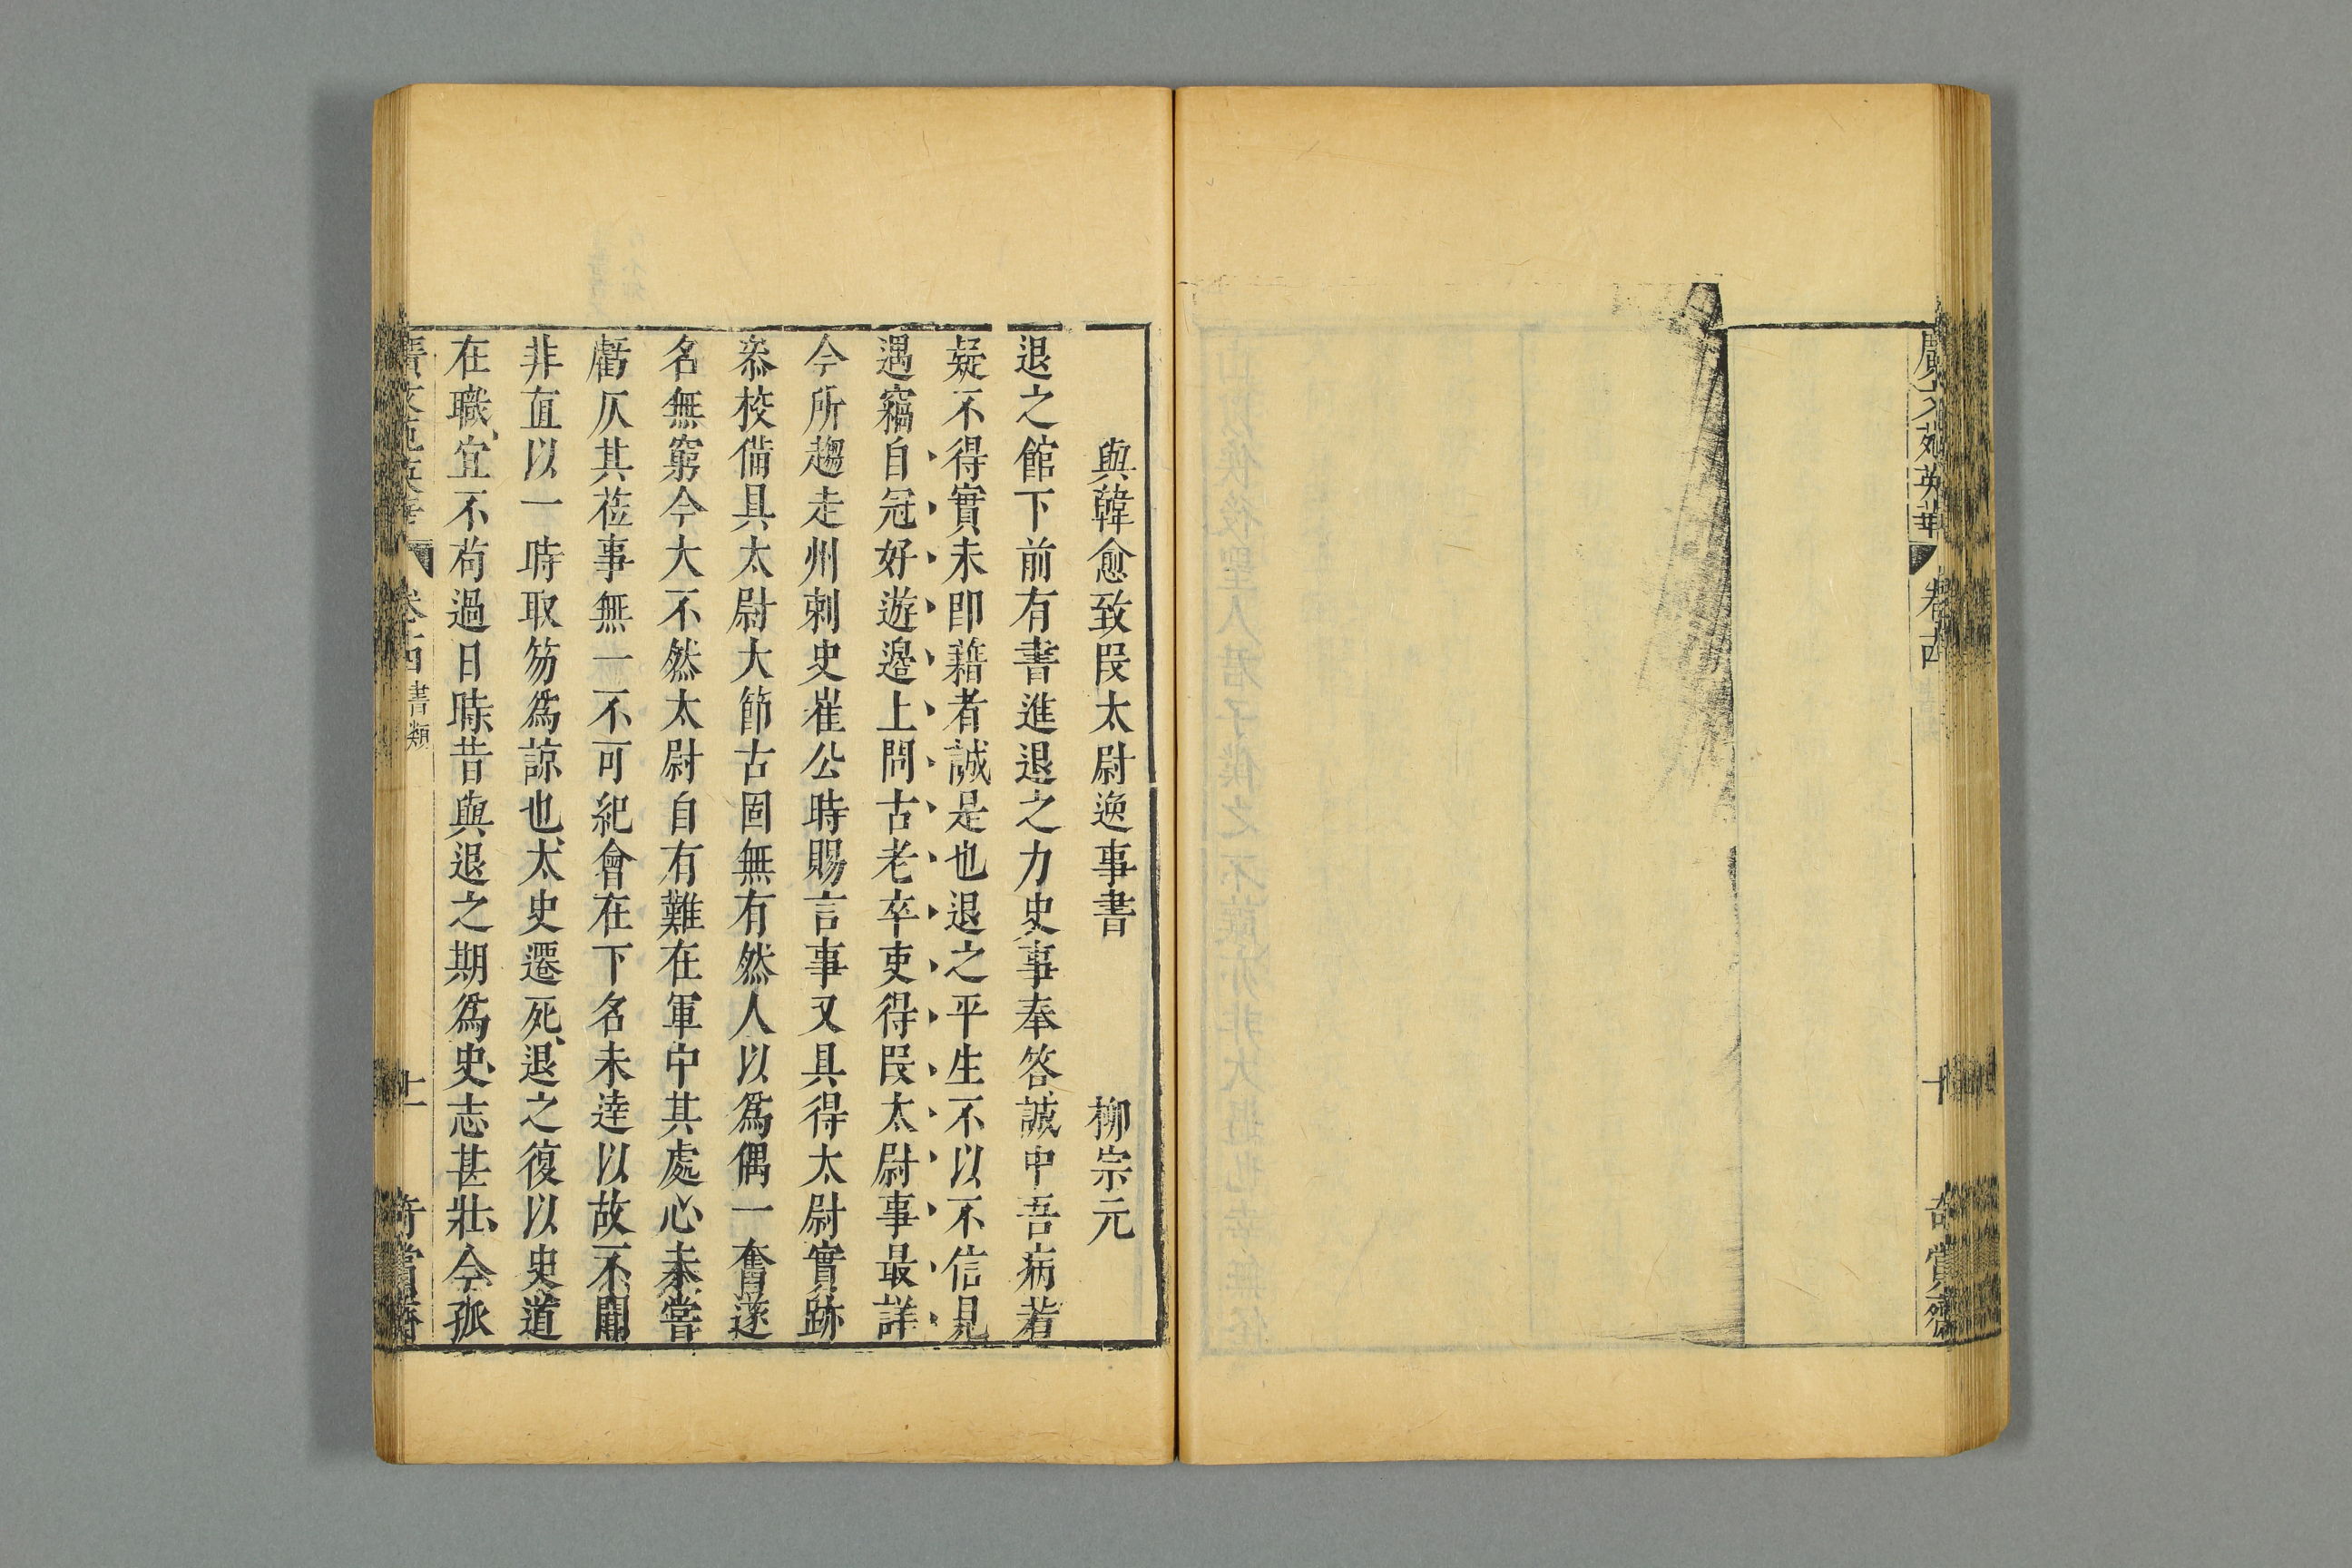 廣文苑英華 卷十四 十 奇賞齋
與韓愈致叚太尉逸事書 柳宗元
退之館下前有書進退之力史事奉答誠中吾病若
疑不得實未卽籍者誠是也退之平生不以不信見
遇竊自冠好遊邊上問古老卒吏得叚太尉事最詳
今所趨走州刺史崔公時賜言事又具得太尉實跡
叅校備具太尉大節古固無有然人以爲偶一奮遂
名無窮今大不然太尉自有難在軍中其處心未嘗
虧仄其莅事無一不可紀會在下名未逹以故不聞
非直以一時取笏爲諒也太史遷死退之復以史道
在職宜不苟過日時昔與退之期爲史志甚壯今孤
廣文苑英華 卷十四 書類 十一 奇賞齋